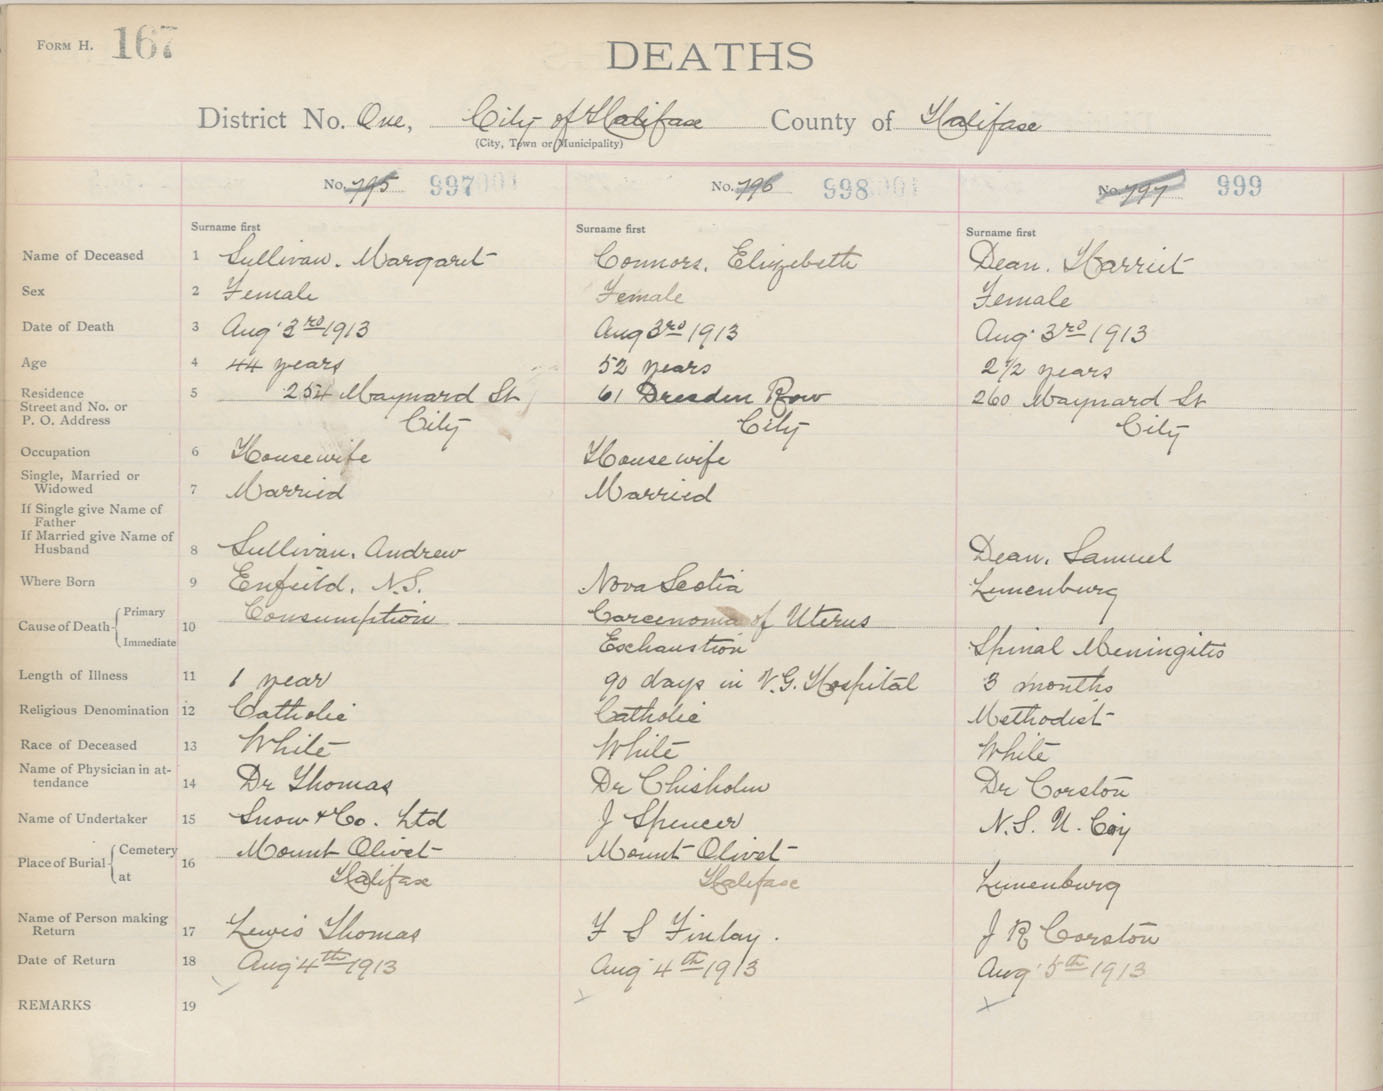 FORM H. 167
DEATHS
District No. One, City of Halifax County of Halifax
(City, Town or Municipality)
No. 795 997 No. 796 998 No. 797 999
Surname first Surname first Surname first
Name of Deceased 1 Sullivan. Margaret Connors. Elizebeth Dean. Harriet
Sex 2 Female Female Female
Date of Death 3 Aug 3rd 1913 Aug 3rd 1913 Aug 3rd 1913
Age 4 44 years 52 years 2½ years
Residence 5 254 Maynard St 61 Dresden Row 260 Maynard St
Street and No. or
P. O. Address City City City
Occupation 6 Housewife Housewife
Single, Married or
Widowed 7 Married Married
If Single give Name of
Father
If Married give Name of
Husband 8 Sullivan. Andrew Dean. Samuel
Where Born 9 Enfield. N.S. Nova Scotia Lunenburg
Cause of Death Primary 10 Consumption Carcenoma of Uterus
Immediate Exchaustion Spinal Meningitis
Length of Illness 11 1 year 90 days in V.G. Hospital 3 months
Religious Denomination 12 Catholic Catholic Methodist
Race of Deceased 13 White White White
Name of Physician in at-
tendance 14 Dr Thomas Dr Chisholm Dr Corston
Name of Undertaker 15 Snow & Co. Ltd J Spencer N.S. U. Coy
Place of Burial Cemetery 16 Mount Olivet Mount Olivet
at Halifax Halifax Lunenburg
Name of Person making
Return 17 Lewis Thomas F S Finlay. J R Corston
Date of Return 18 Aug 4th 1913 Aug 4th 1913 Aug 5th 1913
REMARKS 19